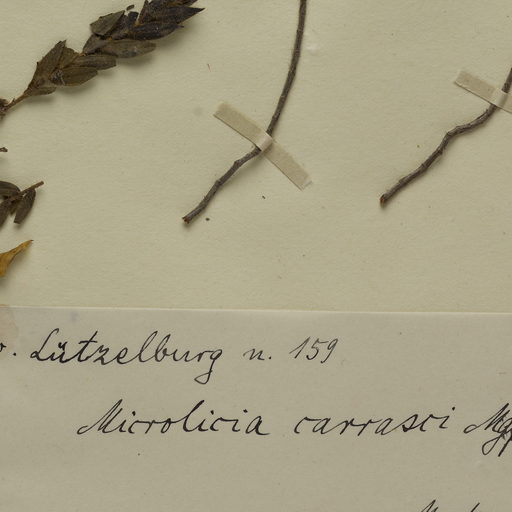 . Lützelburg n. 159
Microlicia carrasci